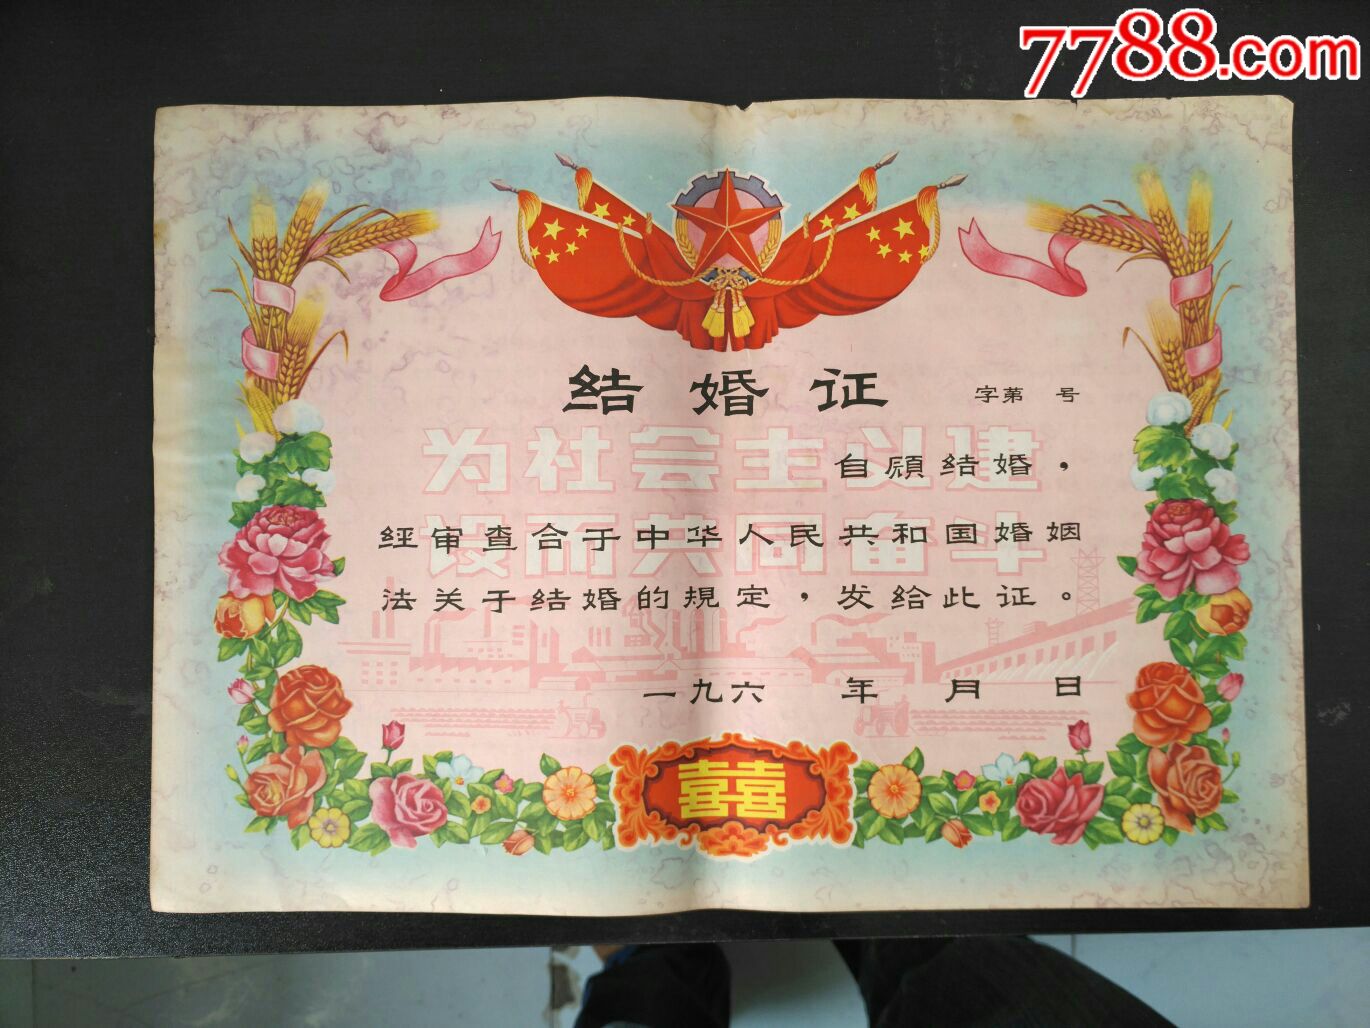 7788.com
结婚证
字第 号
为社会主义建
自願结婚，
设而共同奋斗
经审查合于中华人民共和国婚姻
法关于结婚的規定，发给此证。
一九六 年 月 日
囍